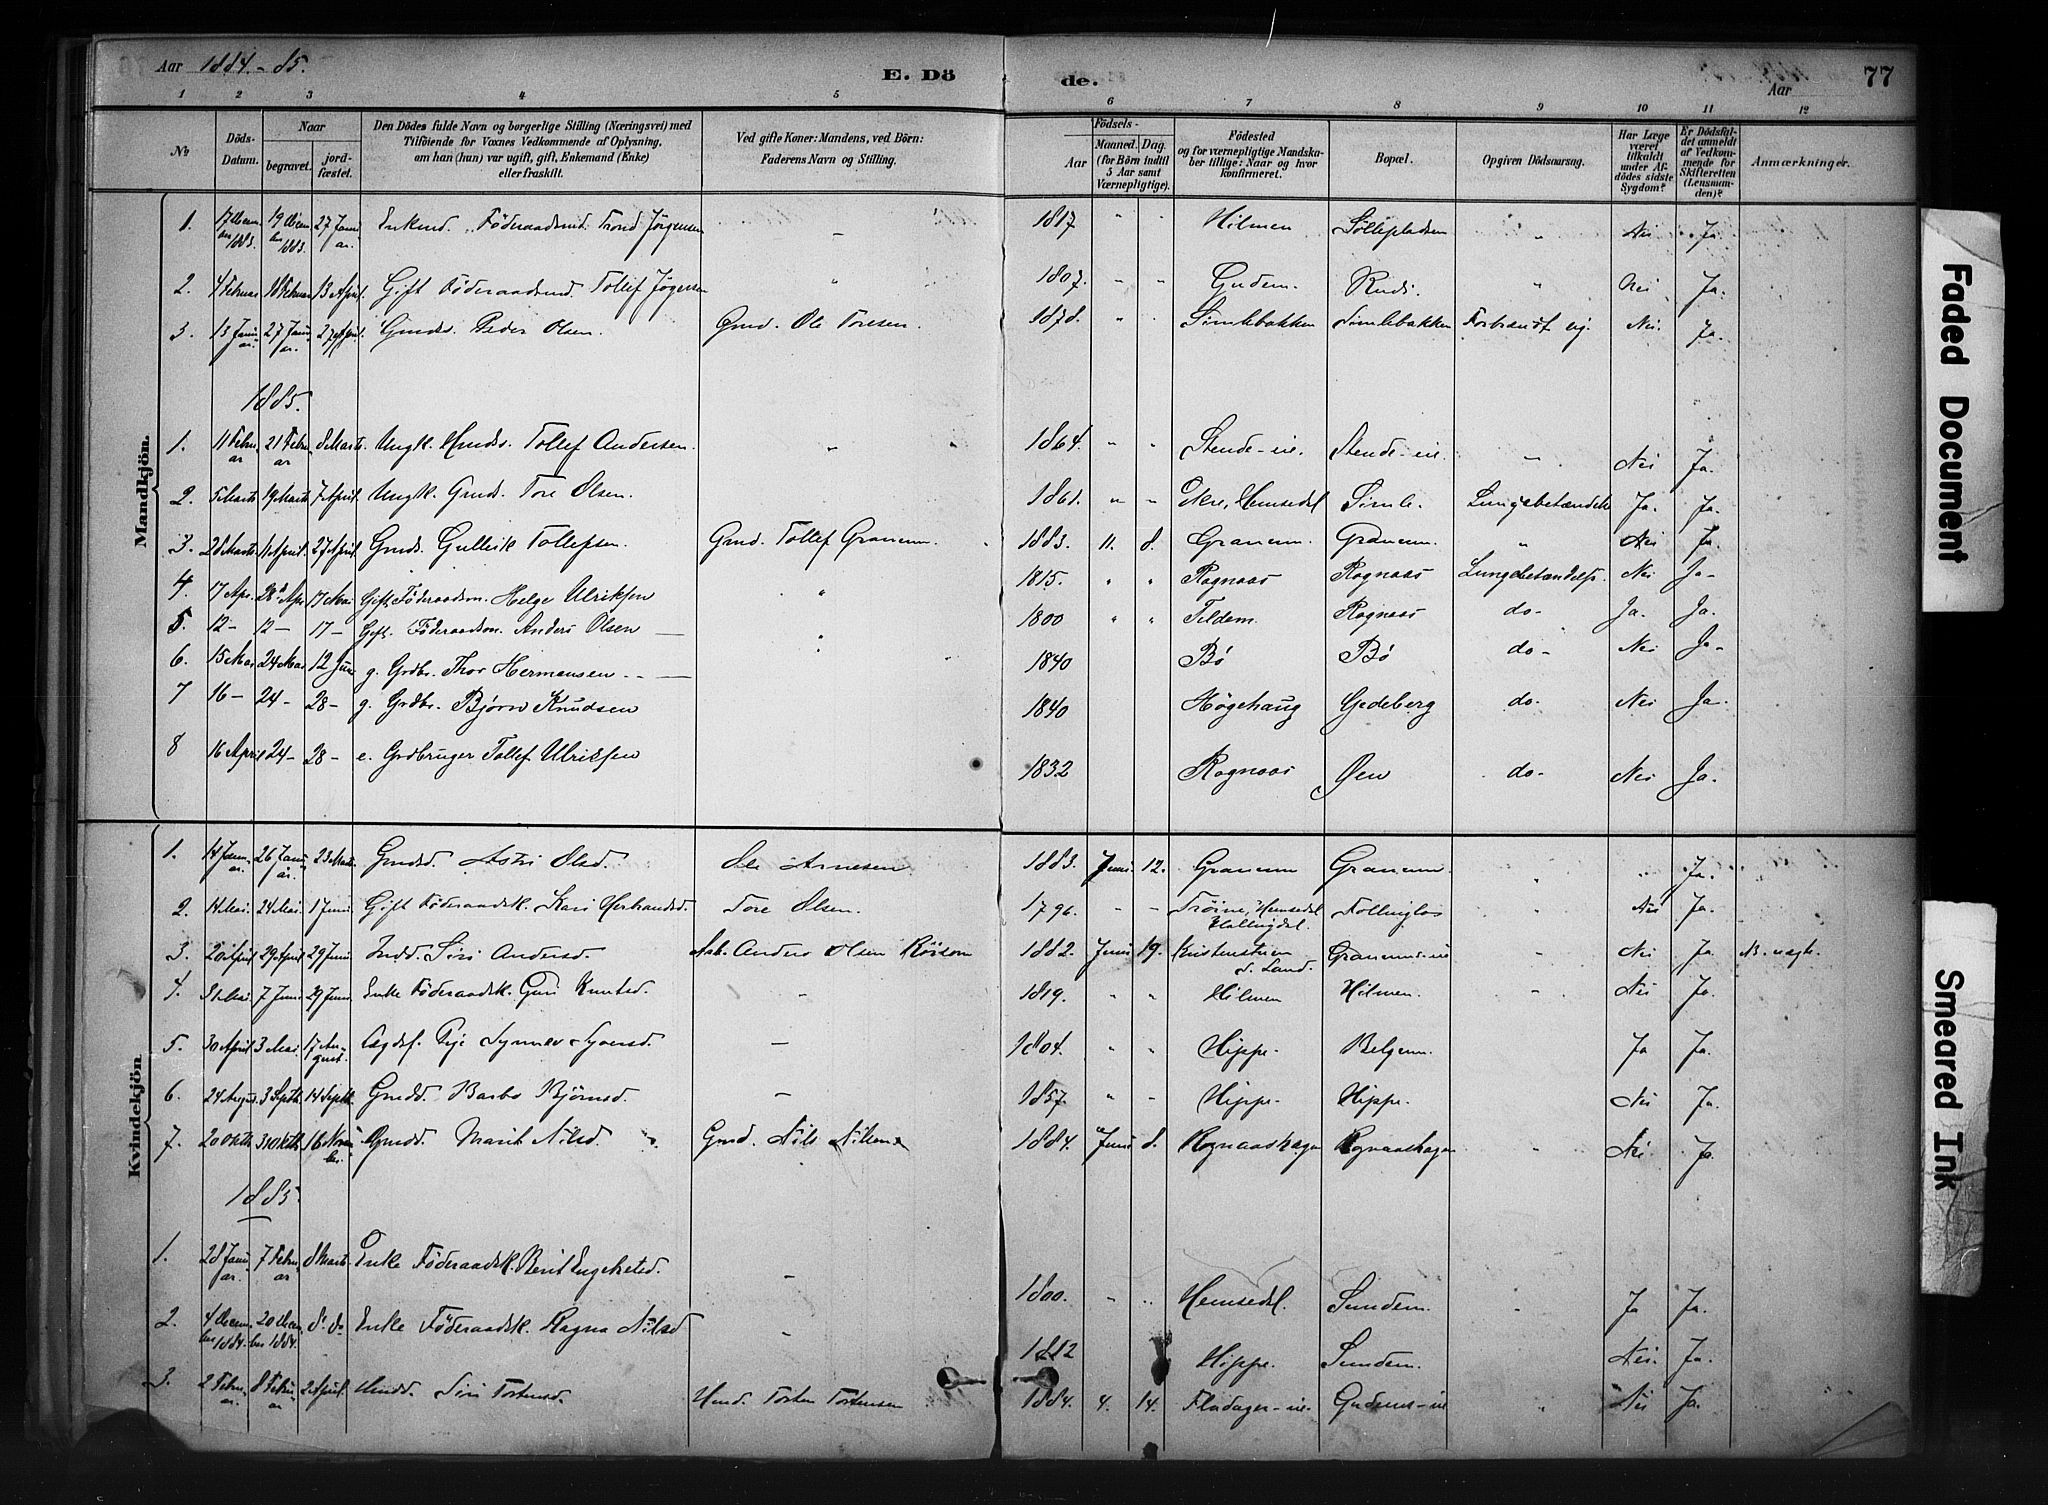 Aar 1884.-85.
E. Döde.
Aar
77
1 2 3 4 5 6 7 8 9 10 11 12
No
Döds-Datum.
Naar
begravet.
jord-fæstet.
Den Dödes fulde Navn og borgerlige Stilling (Næringsvei) med
Tilföiende for Voxnes Vedkommende af Oplysning,
om han (hun) var ugift, gift, Enkemand (Enke)
eller fraskilt.
Ved gifte Koner: Mandens, ved Börn:
Faderens Navn og Stilling.
Födsels-
Aar
Maaned. Dag.
(for Börn indtil
5 Aar samt
Værnepligtige).
Födested
og for værnepligtige Mandska-
ber tillige: Naar og hvor
konfirmeret.
Bopæl.
Opgiven Dödsaarsag.
Har Læge
været
tilkaldt
under Af-
dödes sidste
Sygdom?
Er Dödsfal-
det anmeldt
af Vedkom-
mende for
Skifteretten
(Lensman-
den)?
Anmærkninger.
Mandkjön.
1. 17 Decem-ber 1883. 19 Decem-ber 1883. 27 Janu-ar. Enkmd. Föderaadsmd. Trond Jørgensen - 1817 " " Hilmen Söllepladsen " Nei Ja.
2. 4 Februar 10 Februar 13 April. Gift Föderaadsmd. Tollef Jørgensen " 1807. " " Gudem. Rudi. " Nei Ja.
3. 13 Janu-ar. 27 Janu-ar. 27 April. Gmds. Peder Olsen. Gmd. Ole Toresen. 1878. " " Simlebakken Simlebakken Forbrændt sig. Nei. Ja.
1885.
1. 11 Febru-ar 21 Febru-ar 8 Marts. Ungk. Hmds. Tollef Andersen. " 1864. " " Stende-eie. Stende-eie. " Nei Ja.
2. 5 Marts 19 Marts 7 April. Ungk. Gmds. Tore Olsen. " 1861. " " Ekre, Hemsedal Simle. Lungebetændelse Ja. Ja.
3. 28 Marts. 11 April. 27 April. Gmds. Gullik Tollefsen. Gmd. Tollef Granum. 1883. 11. 8. Granum. Granum. " Nei Ja.
4. 17 Apr. 28 Apr 17 Mai Gift Föderaadsm. Helge Ulriksen " 1815. " " Rognaas Rognaas Lungebetændelse. Nei Ja-
5. 12- 12- 17- Gift. Föderaadsm. Anders Olsen " 1800 " " Teldem. Rognaas do- Ja. Ja.
6. 15 Mai 24 Mai 12 Juni g. Grdbr. Thor Hermansen 1840 Bø Bø do- Nei Ja-
7 16- 24- 28- g. Grdbr. Bjørn Knudsen 1840 Høgehaug Gedeberg do- Nei Ja-
8 16 April 24- 28- e. Grdbruger Tollef Ulriksen 1832 Rognaas Øen do- Nei Ja.
Kvindekjön.
1. 14 Janu-ar 26 Janu-ar. 23 Marts. Gmdsd. Astri Olsd. Ole Arnesen 1883. Juni. 12. Granum Granum. " " Ja.
2. 14 Mai. 24 Mai. 1 Juni. Gift Föderaadsk. Kari Herbrandsd. Tore Olsen. 1796. - - Trøine, Hemsedal Hallingdal. Nei Ja.
3. 20 April 29 April 29 Juni. Indd. Siri Andersd. Anders Olsen 1882. Juni 19. S. Land. Granums-eie " Nei Ja
4. 31 Mai. 7 Juni 29 Juni. Enke Föderaadsk. Guri Knutsd. - 1819. " " Hilmen Hilmen. " Nei Ja.
5. 30 April 3 Mai. 17 Au-gust. Pige Synnøv - 1804. " " Hippe. Belgum. Ja Ja.
6. 24 Augus 3 Septb. 14 Septb. Gmdd. Barbo Bjørnsd. - 1857. " - Hippe. Hippe. Nei Ja.
7. 20 Oktb. 31 Oktb. 16 Novem-ber. Gmdd. Marit Nilsd. Gmd. Nils Nilsen 1884. Juni 8. Rognaashagen Rognaashagen " Nei. Ja.
1885.
1. 28 Janu-ar. 7 Febru-ar 8 Marts Enke Föderaadsk. Berit Engebretsd. - 1800. " " Hemsedal. Sundem. " Ja Ja.
2. 4 Decem-ber 1884. 20 Decem-ber 1884. 8' do Enke Föderaadsk. Ragna Nilsd - 1812 Hippe. Sundem. Nei. Ja.
3. 2 Febru-ar 8 Febru-ar 2 April. Hmdd. Siri Torstensd. Hmd. Torsten Torstensen 1884. 4. 14. Fladager-eie. Gudems-eie " Nei Ja.
Faded Document
Smeared Ink